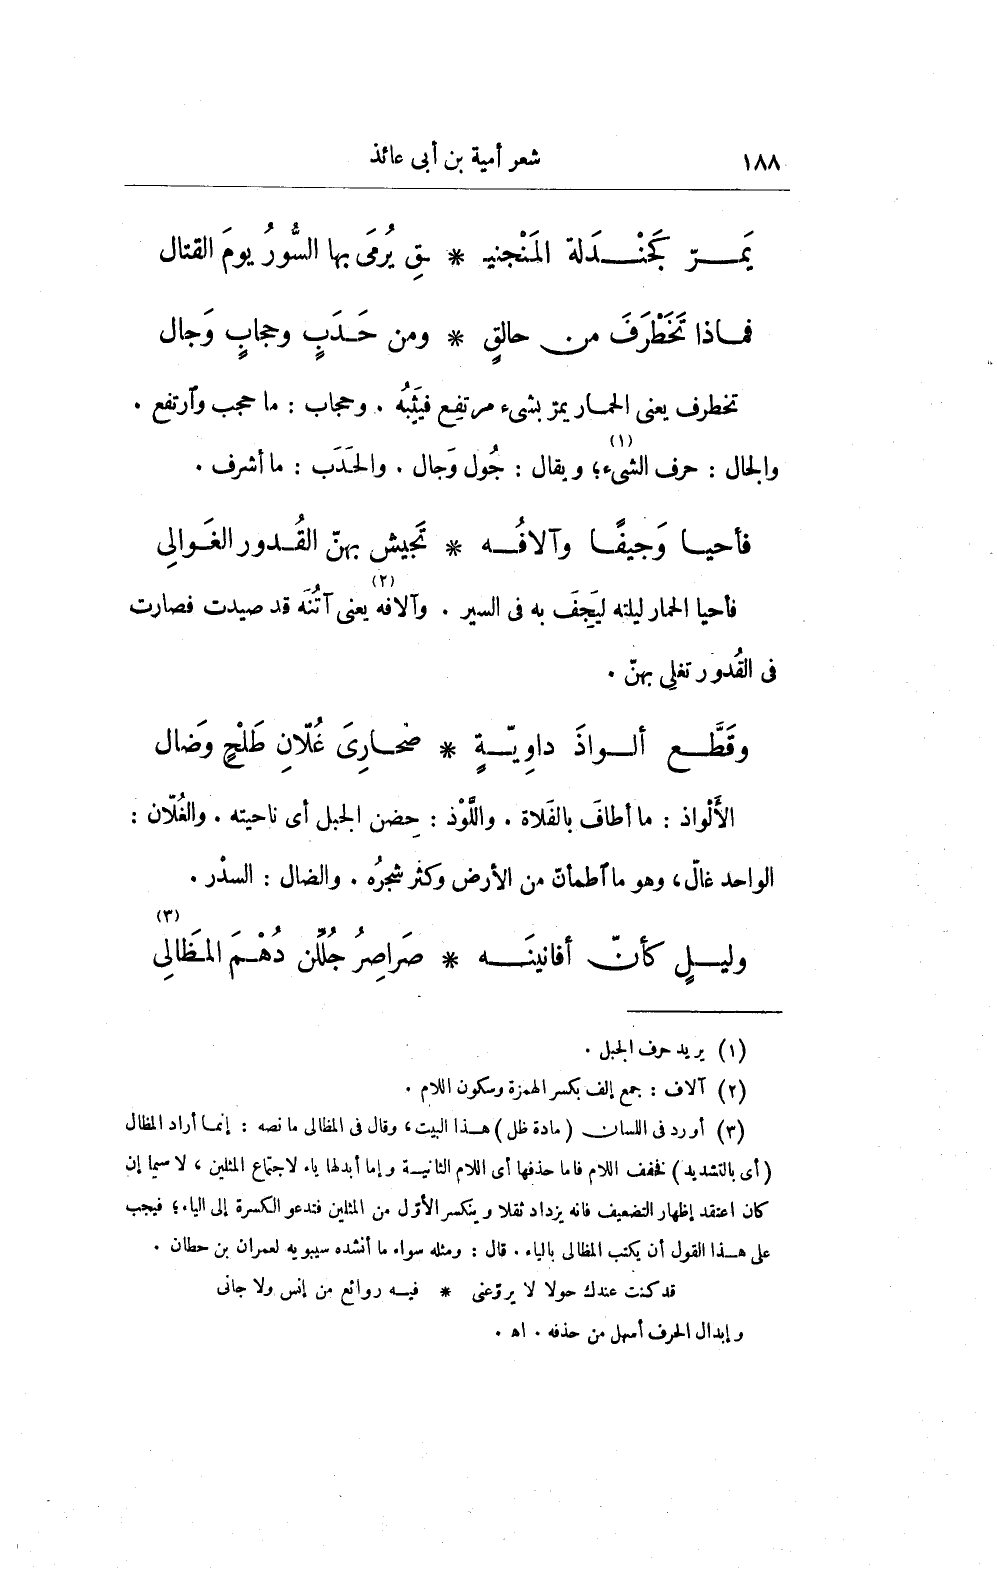 ١٨٨ شعر أمية بن أبى عائذ
يَمــرّ كَجَنْــدَلة المَنْجنيـ * ـقِ يُرمَى بها السُّورُ يومَ القتال
فمـاذا تَخَطْرَفَ من حالقٍ * ومن حَـدَبٍ وحجابٍ وَجال
تخطرف يعنى الحمـار يمرّ بشىء مرتفِع فيَثِبُهُ . وحجاب : ما حجب وآرتفع .
والجال : حرف الشىء(١)؛ ويقال : جُول وَجال . والحَدَب : ما أشرف .
فأحيـا وَجيفًـا وآلافُـه * تَجيش بهنّ القُـدور الغَـوالِي
فأحيا الحمار ليلته ليَجِفَ به فى السير . وآلافه(٢) يعنى آتُنَه قد صيدت فصارت
فى القُدور تغلِي بهنّ .
وقَطَّـع ألـواذَ داوِيّـةٍ * صَحـارِىَ غُلّانِ طَلْحٍ وَضال
الأَلْواذ : ما أطافَ بالفَلاة . واللَّوْذ : حِضن الجبل أى ناحيته . والغُلّان :
الواحد غالّ، وهو ما آطمأنّ من الأرض وكثر شجرُه . والضال : السدْر .
وليـلٍ كأنّ أفانينَـه * صَراصِرُ جُلِّلن دُهْـمَ المَـظَالِى(٣)
(١) يريد حرف الجبل .
(٢) آلاف : جمع إلف بكسر الهمزة وسكون اللام .
(٣) أورد فى اللسان (مادة ظل) هـذا البيت، وقال فى المظالى ما نصه : إنمـا أراد المظال
(أى بالتشديد) فخفف اللام فاما حذفها أى اللام الثانيـة وإما أبدلها ياء لاجتماع المثلين ، لا سيما إن
كان اعتقد إظهار التضعيف فانه يزداد ثقلا وينكسر الأوّل من المثلين فتدعو الكسرة إلى الياء؛ فيجب
على هـذا القول أن يكتب المظالى بالياء . قال : ومثله سواء ما أنشده سيبويه لعمران بن حطان .
قد كنت عندك حولا لا يروّعنى * فيـه روائع من إنس ولا جانى
وإبدال الحرف أسهل من حذفه . اه .